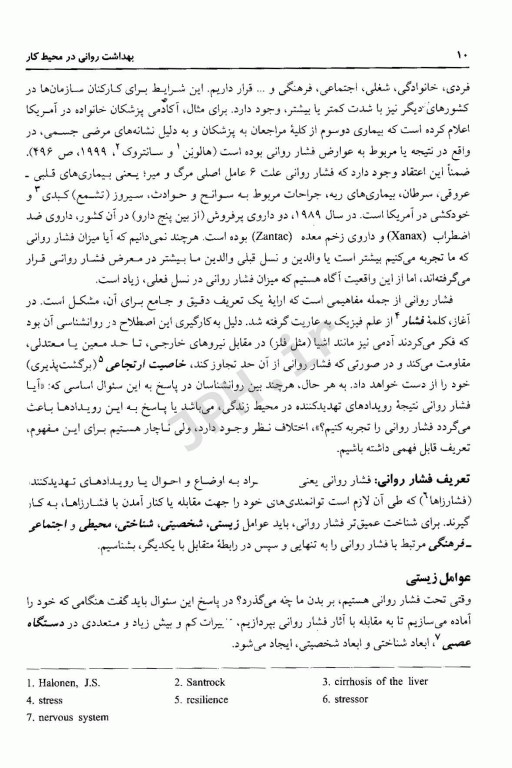 ۱۰ بهداشت روانی در محیط کار
فردی، خانوادگی، شغلی، اجتماعی، فرهنگی و ... قرار داریم. این شرایط برای کارکنان سازمان‌ها در
کشورهای دیگر نیز با شدت کمتر یا بیشتر، وجود دارد. برای مثال، آکادمی پزشکان خانواده در آمریکا
اعلام کرده است که بیماری دوسوم از کلیهٔ مراجعان به پزشکان و به دلیل نشانه‌های مرضی جسمی، در
واقع در نتیجه یا مربوط به عوارض فشار روانی بوده است (هالونن ۱ و سانتروک ۲، ۱۹۹۹، ص ۴۹۶).
ضمناً این اعتقاد وجود دارد که فشار روانی علت ۶ عامل اصلی مرگ و میر؛ یعنی بیماری‌های قلبی ـ
عروقی، سرطان، بیماری‌های ریه، جراحات مربوط به سوانح و حوادث، سیروز (تشمع) کبدی ۳ و
خودکشی در آمریکا است. در سال ۱۹۸۹، دو داروی پرفروش (از بین پنج دارو) در آن کشور، داروی ضد
اضطراب (Xanax) و داروی زخم معده (Zantac) بوده است. هرچند نمی‌دانیم که آیا میزان فشار روانی
که ما تجربه می‌کنیم بیشتر است یا والدین و نسل قبلی والدین ما بیشتر در معرض فشار روانی قرار
می‌گرفته‌اند، اما از این واقعیت آگاه هستیم که میزان فشار روانی در نسل فعلی، زیاد است.
فشار روانی از جمله مفاهیمی است که ارایهٔ یک تعریف دقیق و جامع برای آن، مشکل است. در
آغاز، کلمهٔ فشار ۴ از علم فیزیک به عاریت گرفته شد. دلیل به‌کارگیری این اصطلاح در روانشناسی آن بود
که فکر می‌کردند آدمی نیز مانند اشیا (مثل فلز) در مقابل نیروهای خارجی، تا حد معین یا معتدلی،
مقاومت می‌کند و در صورتی که فشار روانی از آن حد تجاوز کند، خاصیت ارتجاعی ۵ (برگشت‌پذیری)
خود را از دست خواهد داد. به هر حال، هرچند بین روانشناسان در پاسخ به این سئوال اساسی که: «آیا
فشار روانی نتیجهٔ رویدادهای تهدیدکننده در محیط زندگی، می‌باشد یا پاسخ به این رویدادها باعث
می‌گردد فشار روانی را تجربه کنیم؟»، اختلاف نظر وجود دارد، ولی ناچار هستیم برای این مفهوم،
تعریف قابل فهمی داشته باشیم.
تعریف فشار روانی: فشار روانی یعنی راد به اوضاع و احوال یا رویدادهای تهدیدکننده
(فشارزاها ۶) که طی آن لازم است توانمندی‌های خود را جهت مقابله یا کنار آمدن با فشارزاها، به کار
گیرند. برای شناخت عمیق‌تر فشار روانی، باید عوامل زیستی، شخصیتی، شناختی، محیطی و اجتماعی
ـ فرهنگی مرتبط با فشار روانی را به تنهایی و سپس در رابطهٔ متقابل با یکدیگر، بشناسیم.
عوامل زیستی
وقتی تحت فشار روانی هستیم، بر بدن ما چه می‌گذرد؟ در پاسخ این سئوال باید گفت هنگامی که خود را
آماده می‌سازیم تا به مقابله با آثار فشار روانی بپردازیم، ییرات کم و بیش زیاد و متعددی در دستگاه
عصبی ۷، ابعاد شناختی و ابعاد شخصیتی، ایجاد می‌شود.
1. Halonen, J.S. 2. Santrock 3. cirrhosis of the liver
4. stress 5. resilience 6. stressor
7. nervous system